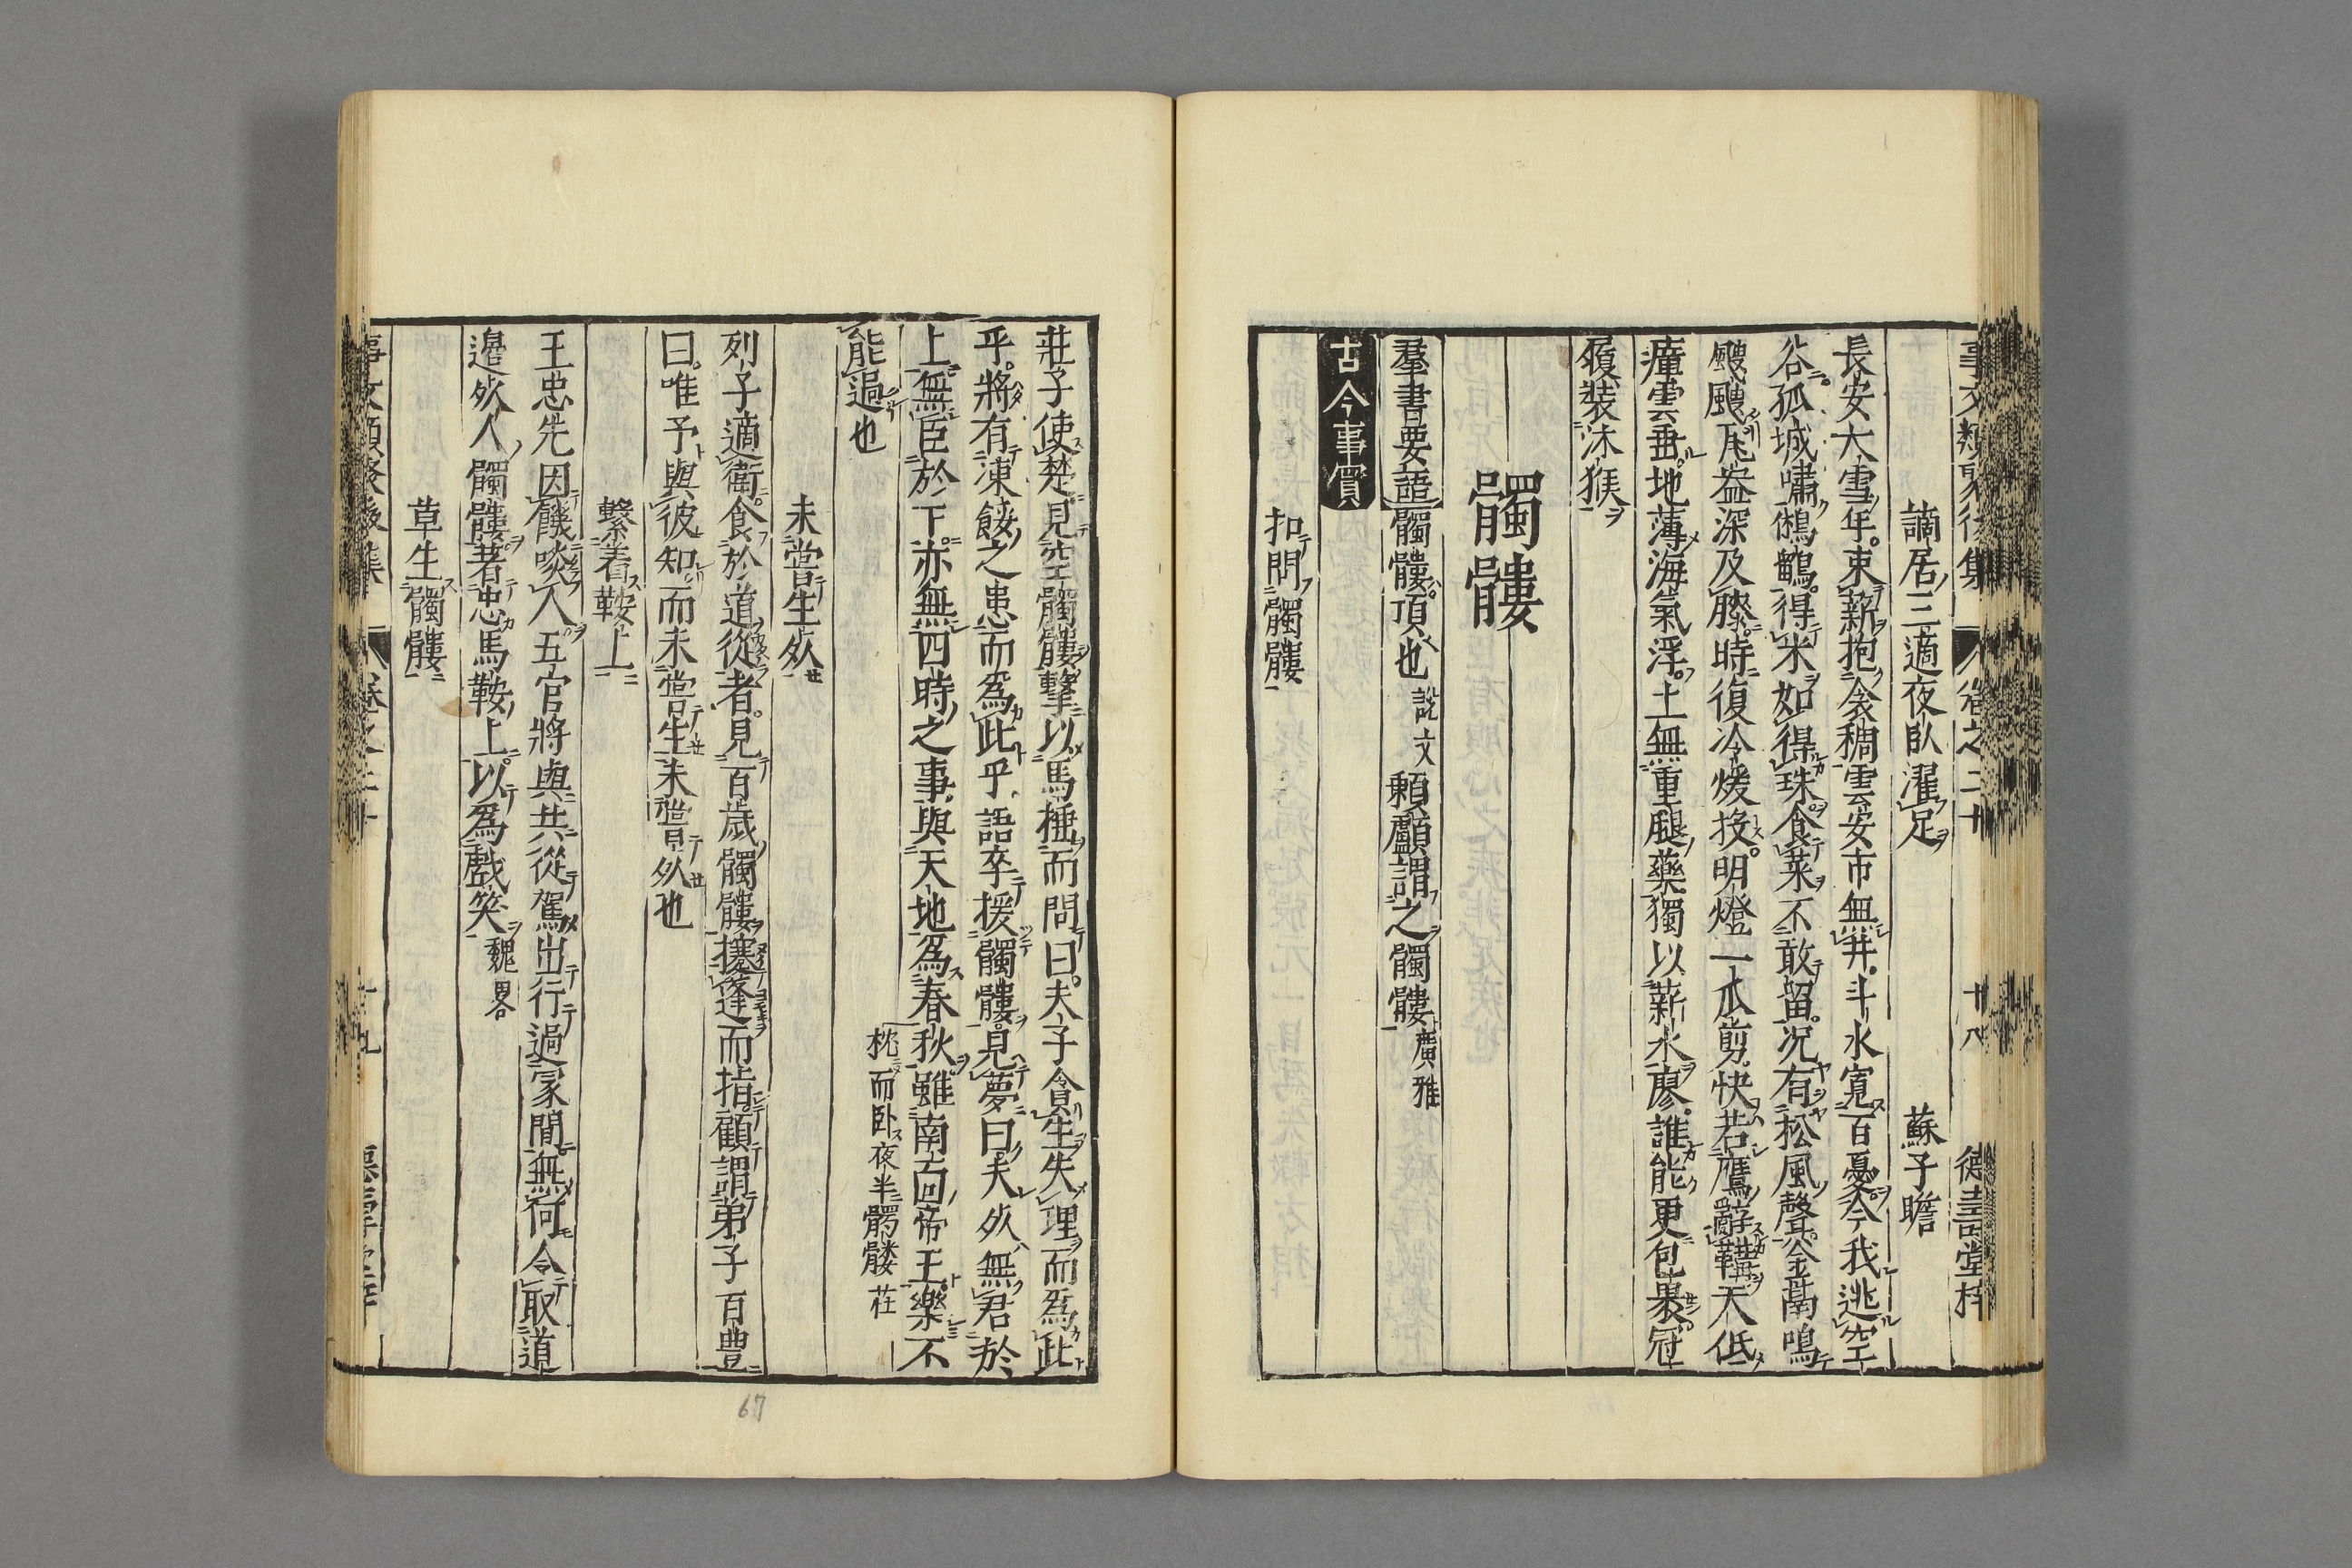 事文類聚後集 卷之二十 十八 德壽堂梓
謫居三適夜臥濯足 蘇子瞻
長安大雪年束薪抱衾裯雲安市無井斗水寬百憂今我逃空
谷孤城嘯鵂鶹得米如得珠食菜不敢留况有松風聲釜鬲鳴
颼颼瓦盎深及膝時復冷煖投明燈一爪剪快若鷹辭鞲天低
瘴雲垂地薄海氣浮土無重膇藥獨以薪水廖誰能更包裹冠
履裝沐猴
髑髏
羣書要語髑髏頂也說文顖顱謂之髑髏廣雅
古今事實
扣問髑髏
莊子使楚見空髑髏擊以馬捶而問曰夫子貪生失理而爲此
乎將有凍餒之患而爲此乎語卒援髑髏見夢曰夫死無君於
上無臣於下亦無四時之事與天地爲春秋雖南面帝王樂不
能過也 枕而卧夜半髑髏 莊
未嘗生死
列子適衛食於道從者見百歲髑髏攓蓬而指顧謂弟子百豐
曰唯予與彼知而未嘗生未嘗死也
繫着鞍上
王忠先因饑啖人五官將與共從駕出行過冢間無何令取道
邊死人髑髏著忠馬鞍上以爲戲笑魏畧
草生髑髏
事文類聚後集 卷之二十 十九